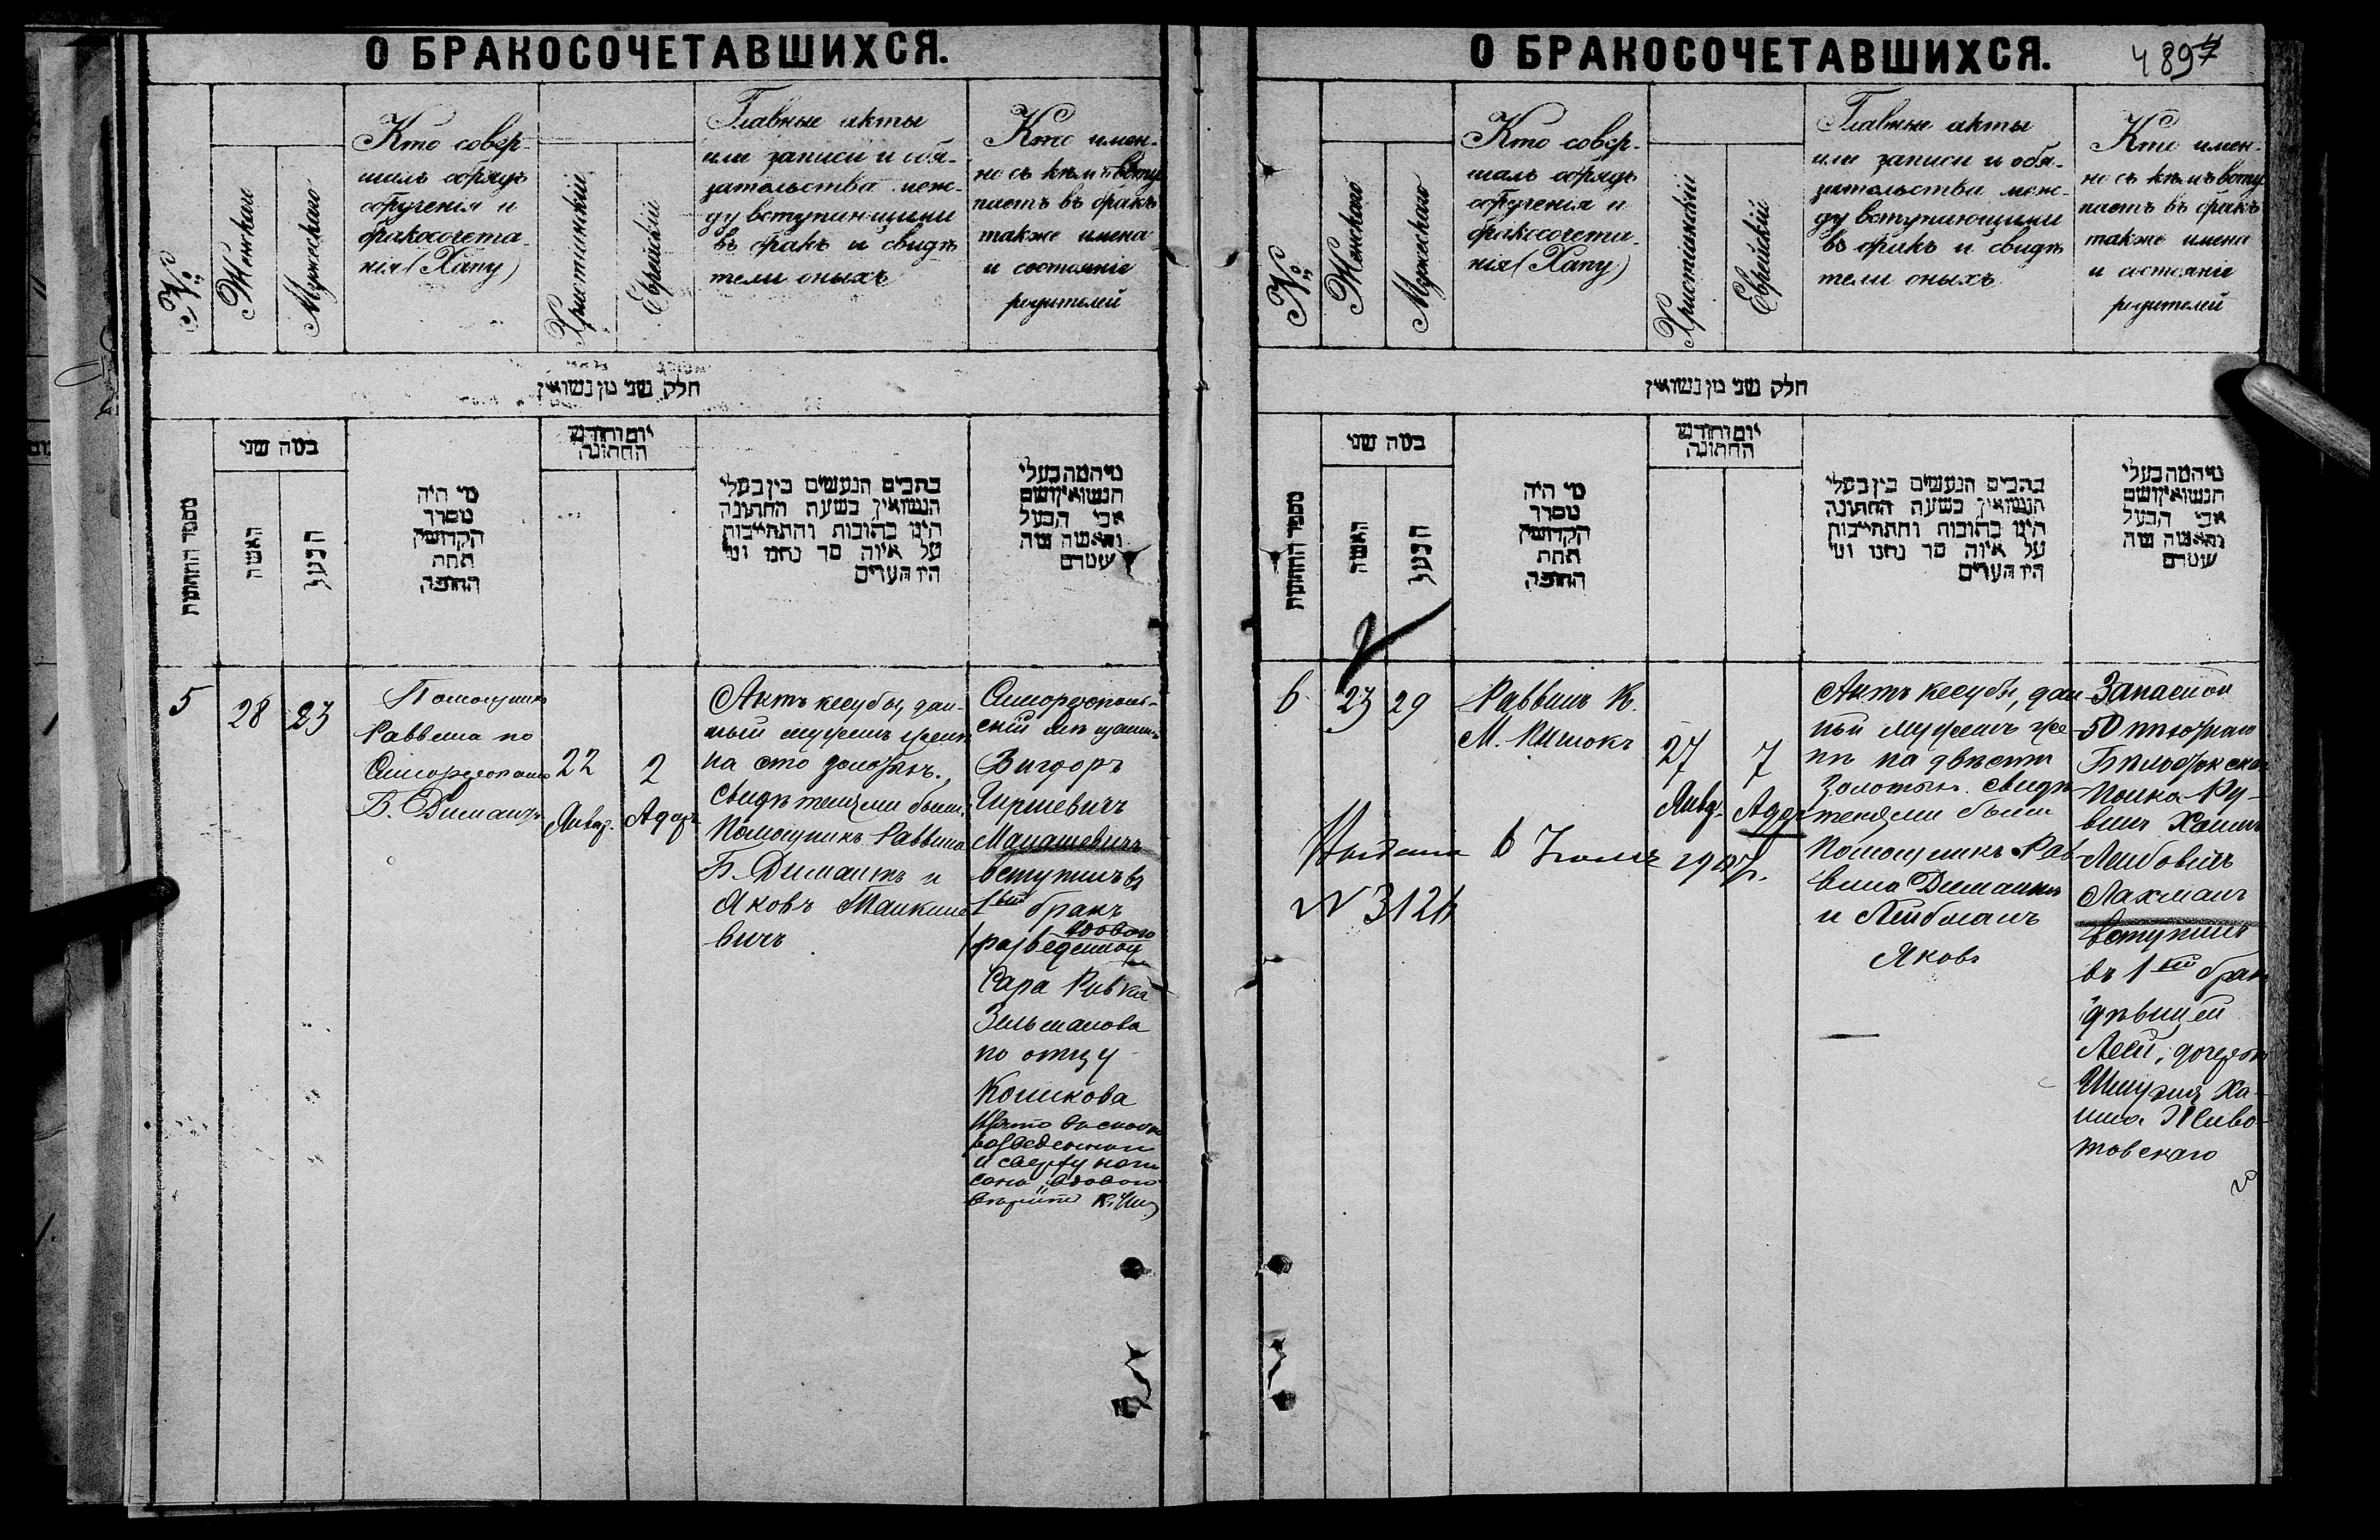 О БРАКОСОЧЕТАВШИХСЯ.
№
Женскаго
Мужескаго
Кто совер-
шалъ обрядъ
обрученія и
бракосочета-
нія (Хапу)
Христіанскій
Еврейскій
Главные акты
или записи и обя-
зательства меж-
ду вступающими
въ бракъ и свидѣ
тели оныхъ
Кто имен-
но съ кѣмъ всту
паетъ въ бракъ
также имена
и состояніе
родителей
חלק שני מן נשואין
מספר החתונות
במה שני
האשה
הבעל
מי היה
מסדר
הקדושין
תחת
החופה
יום וחודש
החתונה
כתבים הנעשים בין בעלי
הנשואין בשעת החתונה
היינו כתובות והתחייבות
על איזה סך נתנו ומי
היו העדים
מי המה בעלי
הנשואין ושם
אבי הבעל
והאשה מה
שמם
5
28
23
Помощникъ
Раввина по
Б. Димантъ
22
Январ.
2
Адаръ
Актъ кесубы, дан-
ный мужемъ женѣ
на сто золотыхъ.
Свидѣтелями были:
Помощникъ Раввина
Б. Димантъ и
Яковъ
вичъ
Вигдоръ
Гиршевичъ
Манашевичъ
вступилъ въ
1ый бракъ
вдовою
разведенной
Сара Ривка
Зельманова
по отцу
Кошкова
разведенной
и сверху напи
сано „вдовою
О БРАКОСОЧЕТАВШИХСЯ.
489
№
Женскаго
Мужескаго
Кто совер-
шалъ обрядъ
обрученія и
бракосочета-
нія (Хапу)
Христіанскій
Еврейскій
Главные акты
или записи и обя-
зательства меж-
ду вступающими
въ бракъ и свидѣ
тели оныхъ
Кто имен-
но съ кѣмъ всту
паетъ въ бракъ
также имена
и состояніе
родителей
חלק שני מן נשואין
מספר החתונות
במה שני
האשה
הבעל
מי היה
מסדר
הקדושין
תחת
החופה
יום וחודש
החתונה
כתבים הנעשים בין בעלי
הנשואין בשעת החתונה
היינו כתובות והתחייבות
על איזה סך נתנו ומי
היו העדים
מי המה בעלי
הנשואין ושם
אבי הבעל
והאשה מה
שמם
6
23
29
Раввинъ К.
М.
27
Янвр.
7
Адаръ
Актъ кесубы, дан
ный мужемъ же
нѣ на двѣсти
золотыхъ. Свидѣ
телями были
Помощникъ Рав
вина Димантъ
и Лейбманъ
Яковъ
Запасной
50 пѣхотнаго
Бѣлостокскаго
полка Ру-
винъ Хаимъ
Лейбовичъ
Лахманъ
вступилъ
въ 1ый бракъ
дѣвицей
Леей, дочерью
Шмуэля Ха-
има Живо-
товскаго
6 1907г.
№ 3126